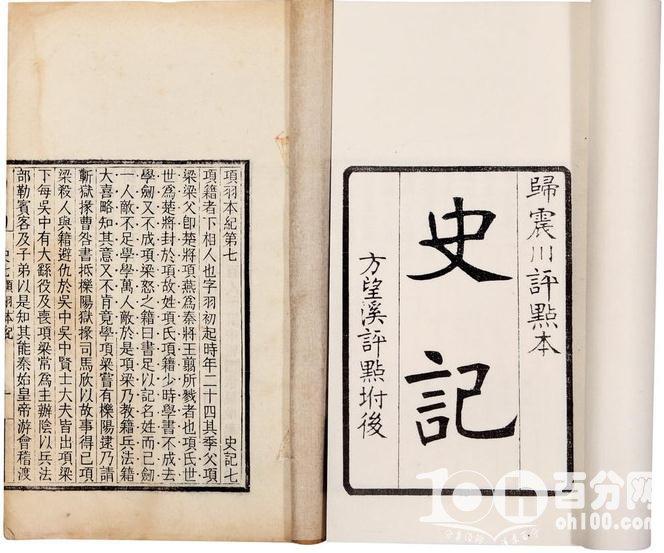 歸震川評點本
史記
方望溪評點坿後
項羽本紀第七
史記七
項籍者下相人也字羽初起時年二十四其季父項
梁梁父卽楚將項燕爲秦將王翦所戮者也項氏世
世爲楚將封於項故姓項氏項籍少時學書不成去
學劒又不成項梁怒之籍曰書足以記名姓而已劒
一人敵不足學學萬人敵於是項梁乃敎籍兵法籍
大喜略知其意又不肯竟學項梁嘗有櫟陽逮乃請
蘄獄掾曹咎書抵櫟陽獄掾司馬欣以故事得已項
梁殺人與籍避仇於吳中吳中賢士大夫皆出項梁
下每吳中有大繇役及喪項梁常爲主辦陰以兵法
部勒賓客及子弟以是知其能秦始皇帝游會稽渡
史七項羽本紀
一
百分网
oh100.com